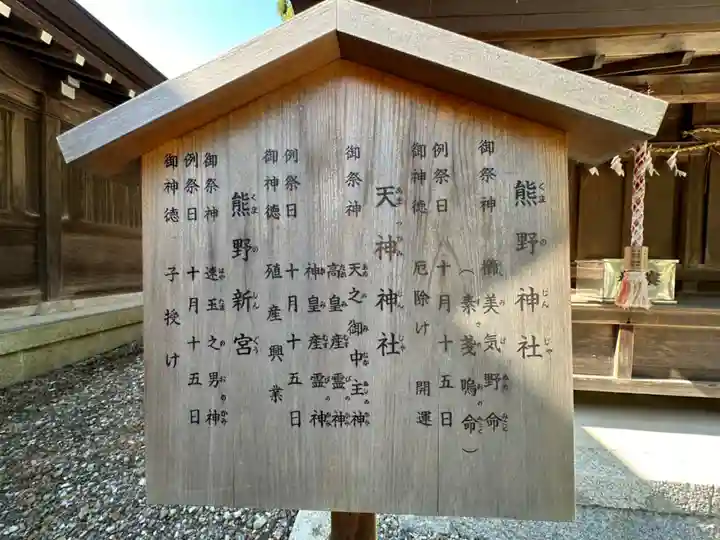 熊野神社
御祭神 櫛美気野命
(素戔嗚命)
例祭日 十月十五日
御神徳 厄除け 開運
天神神社
御祭神 天之御中主神
高皇産霊神
神皇産霊神
例祭日 十月十五日
御神徳 殖産興業
熊野新宮
御祭神 速玉之男神
例祭日 十月十五日
御神徳 子授け